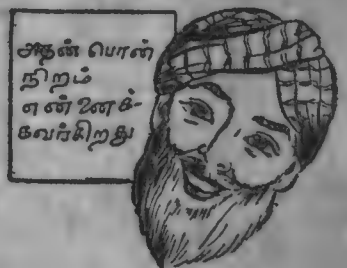 அதன் பொன்
நிறம்
என்னைக்-
கவர்கிறது